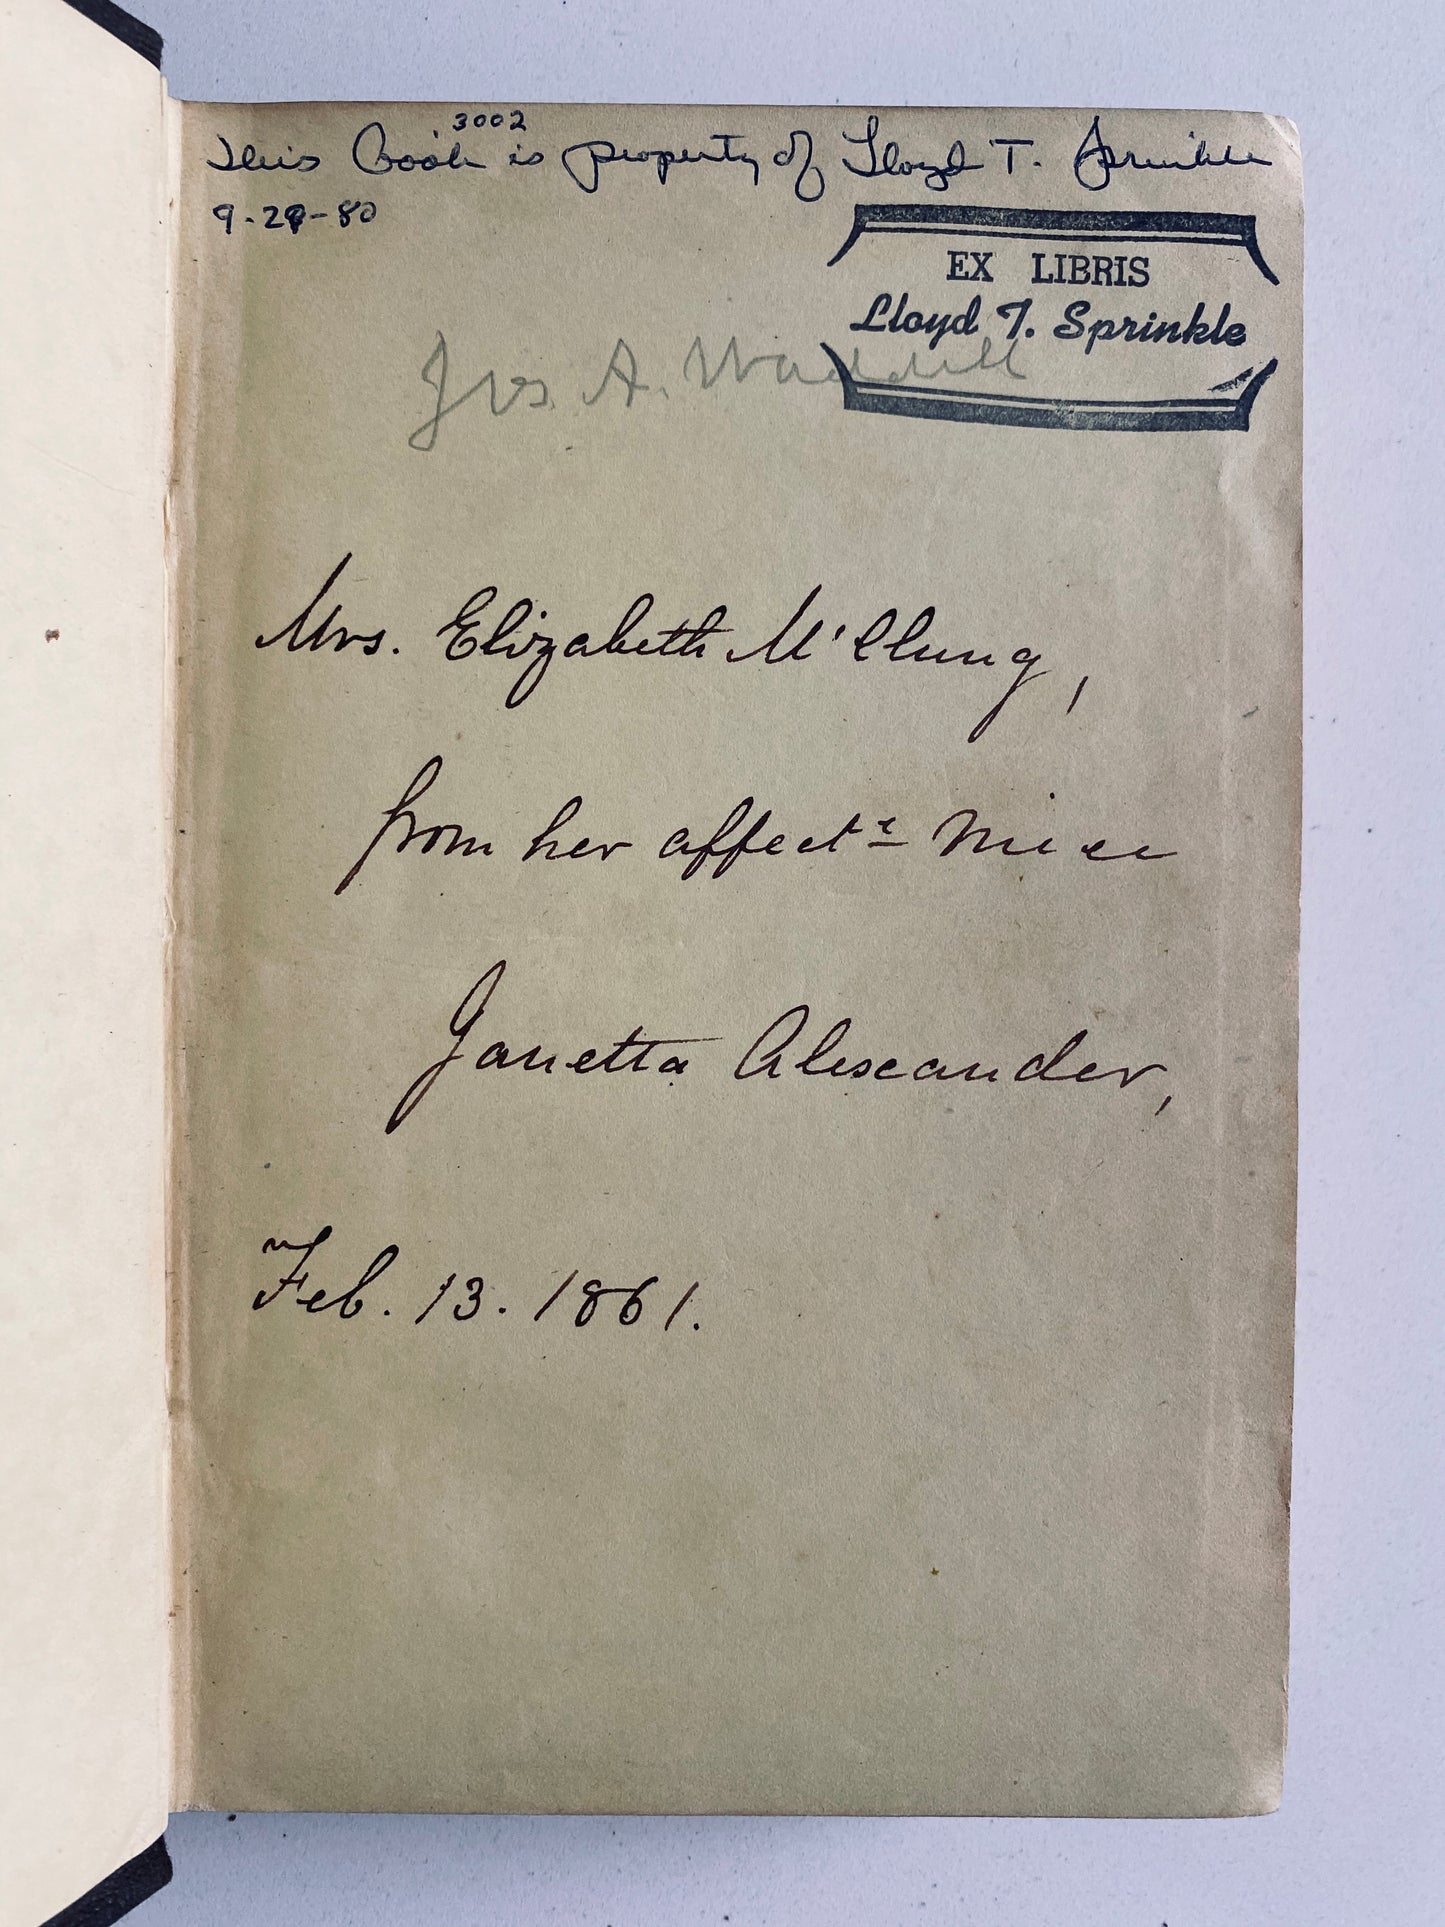 3002
This Book is property of Lloyd T. Sprinkle
9-29-80
EX LIBRIS
Lloyd T. Sprinkle
Jos. A. Waddell
Mrs. Elizabeth M'Clung,
from her affectᵉ niece
Janetta Alexander,
Feb. 13. 1861.